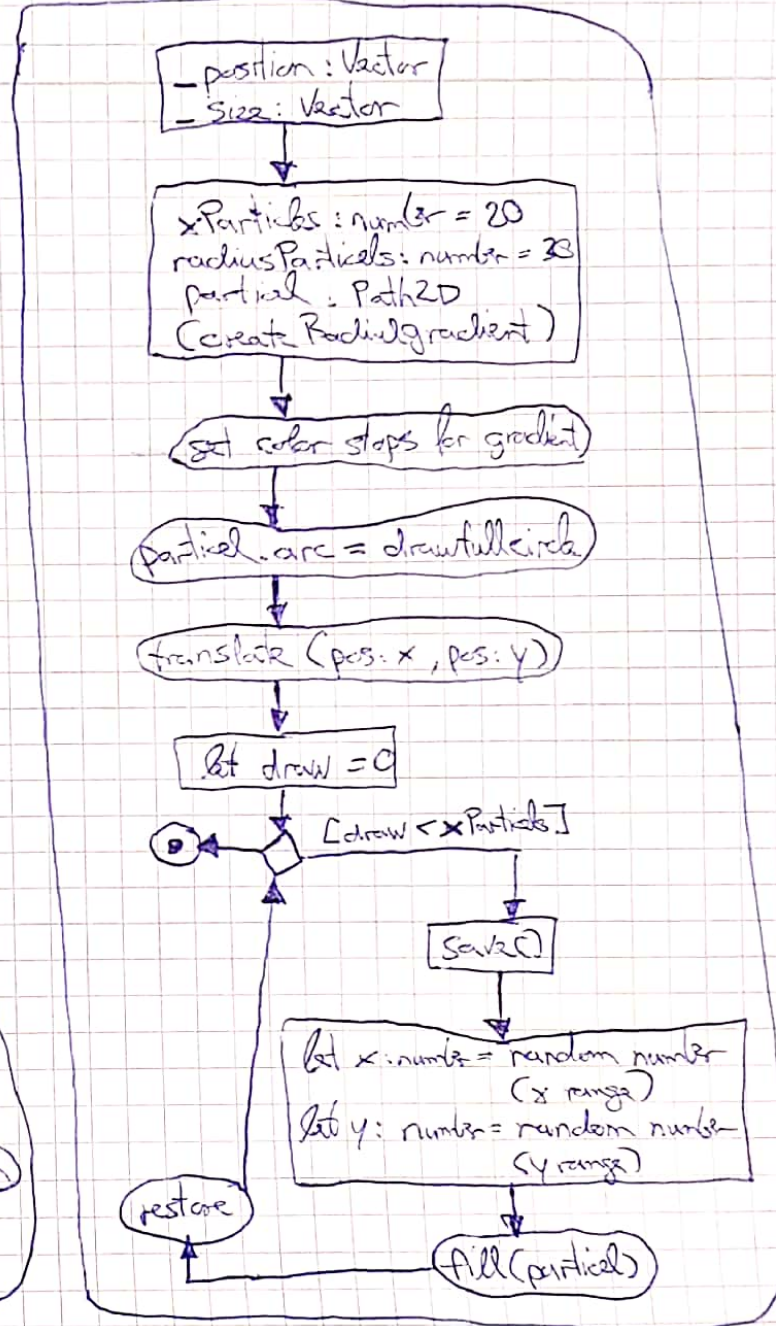 _ position : Vector
_ size : Vector
xParticles : number = 20
radiusParticels : number =
: Path2D
(createRadialgradient)
set color stops for gradient
particel.arc = drawfullcircle
translate (pos.x , pos.y)
let draw = 0
[draw < xParticles]
save()
let x : number = random number
(x range)
let y : number = random number
(y range)
fill(particel)
restore